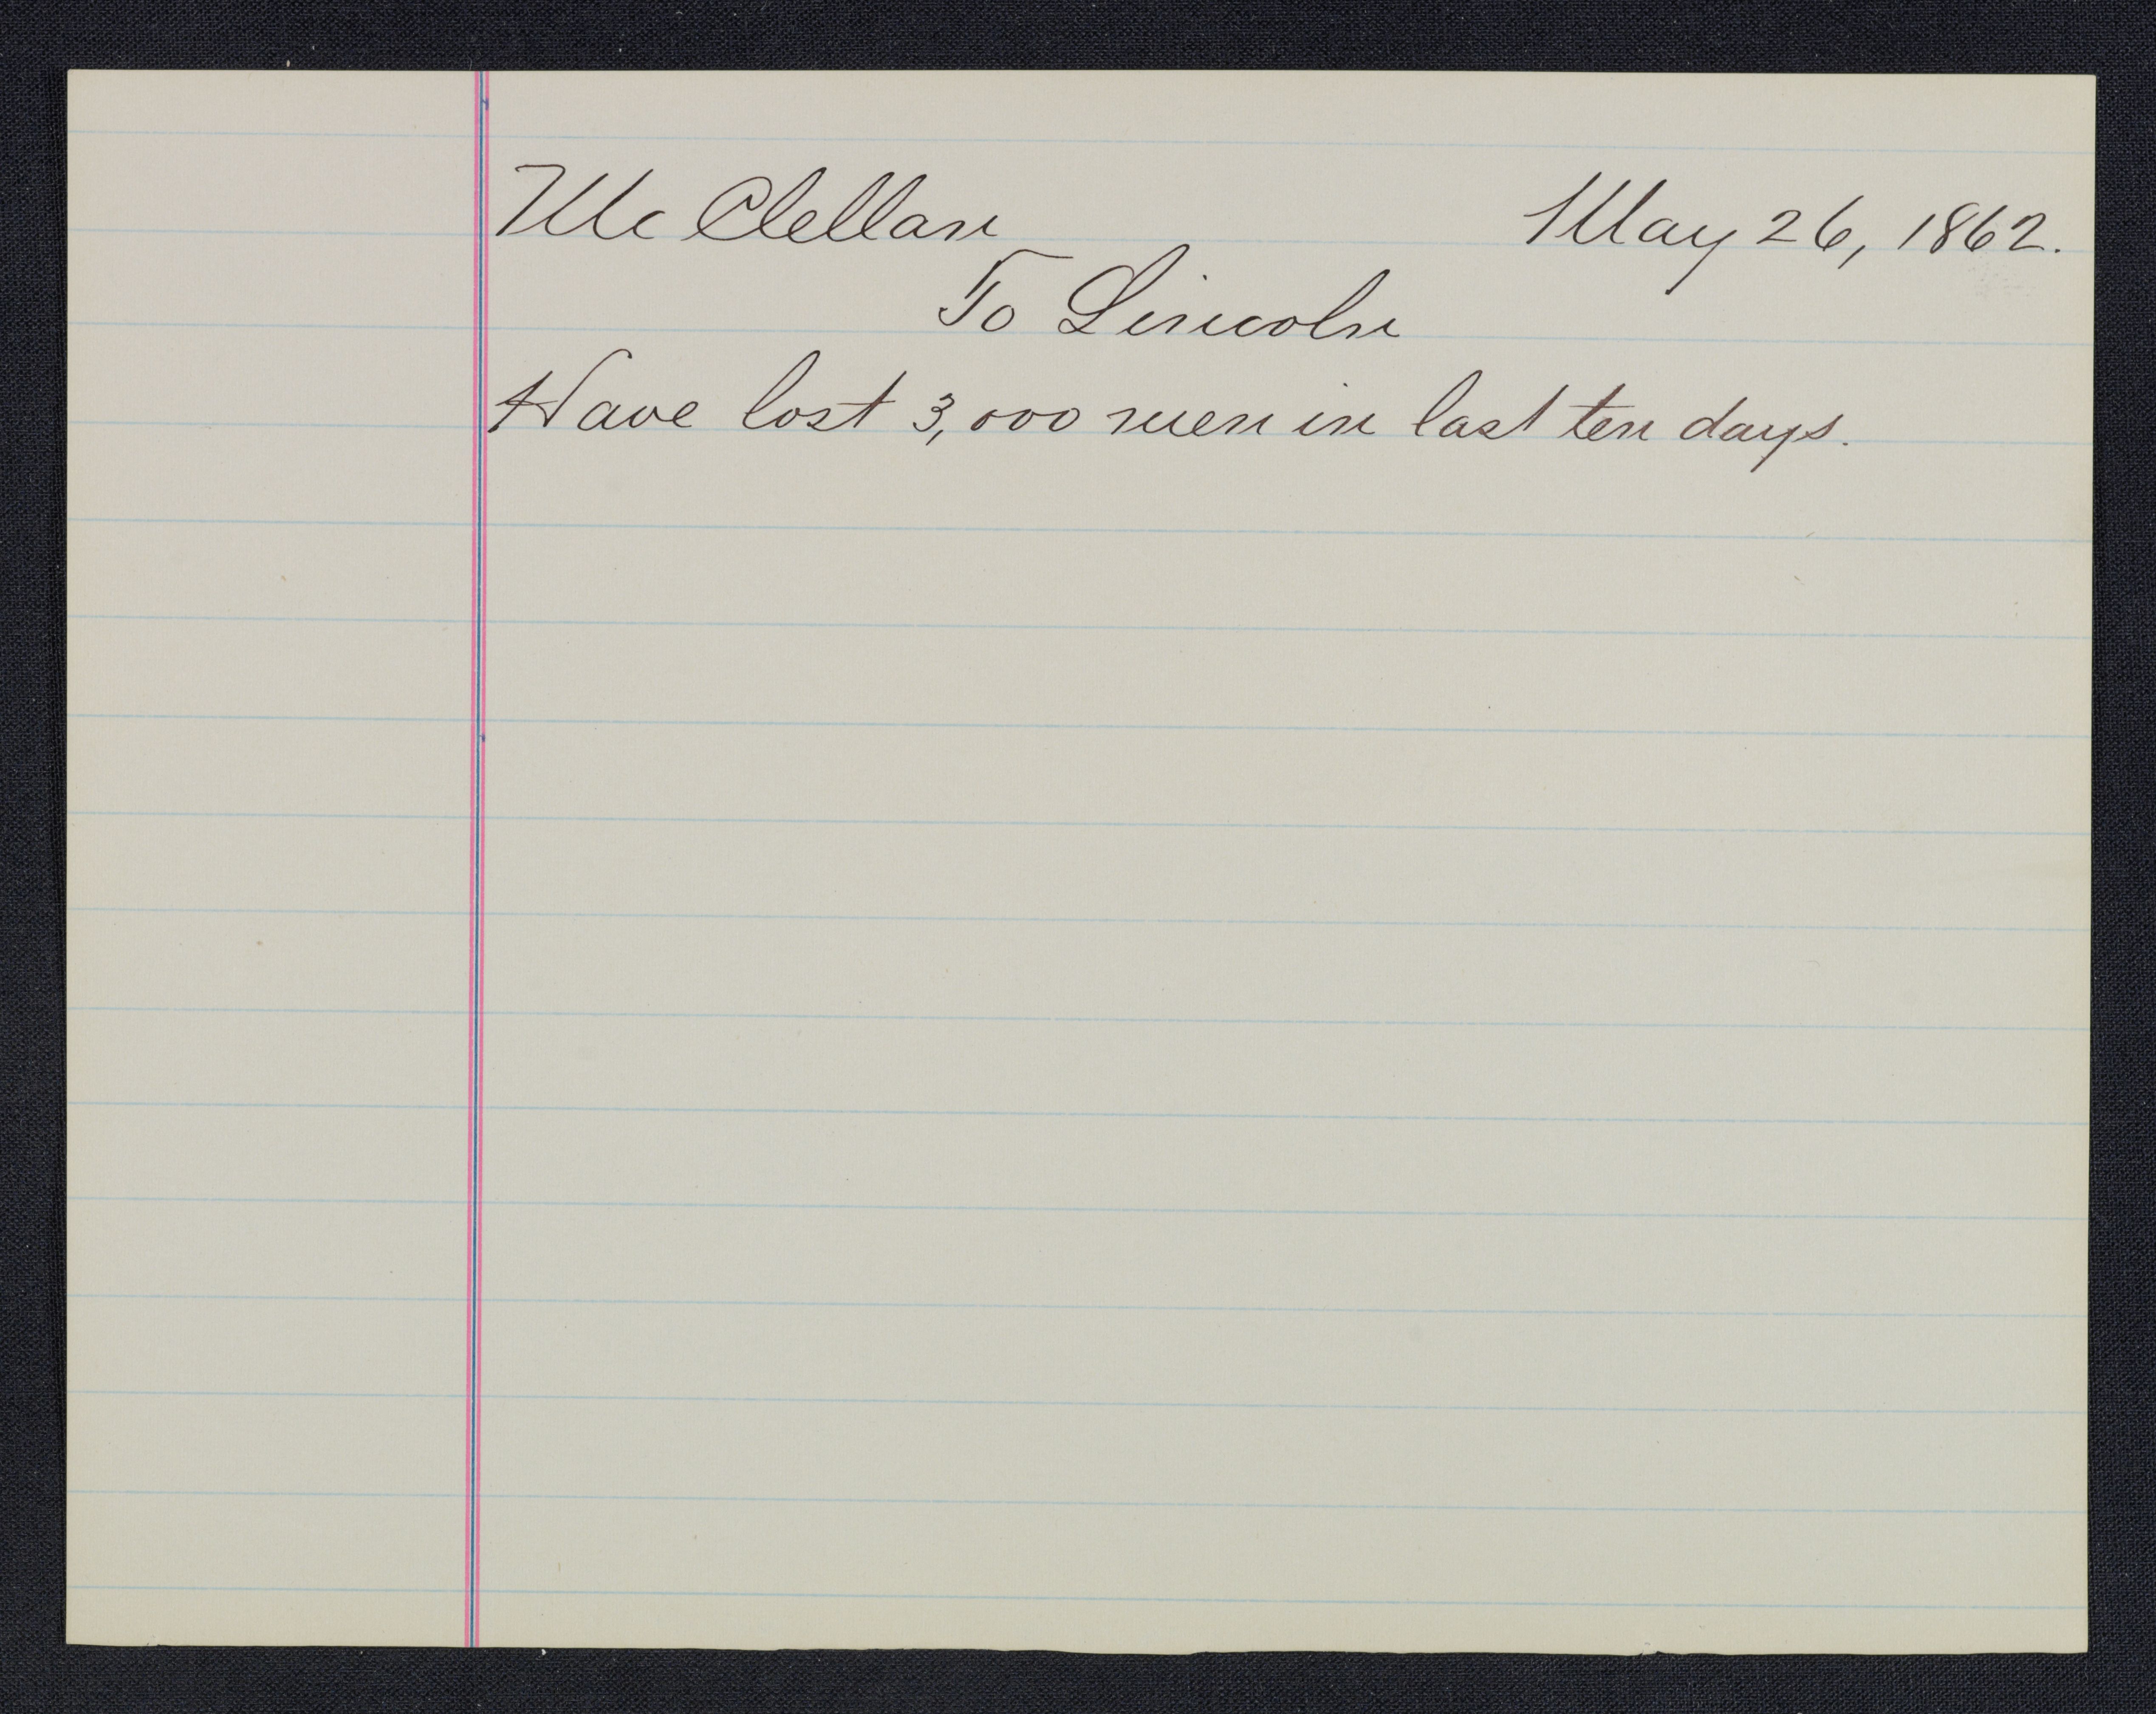 McClellan May 26, 1862.
To Lincoln
Have lost 3,000 men in last ten days.